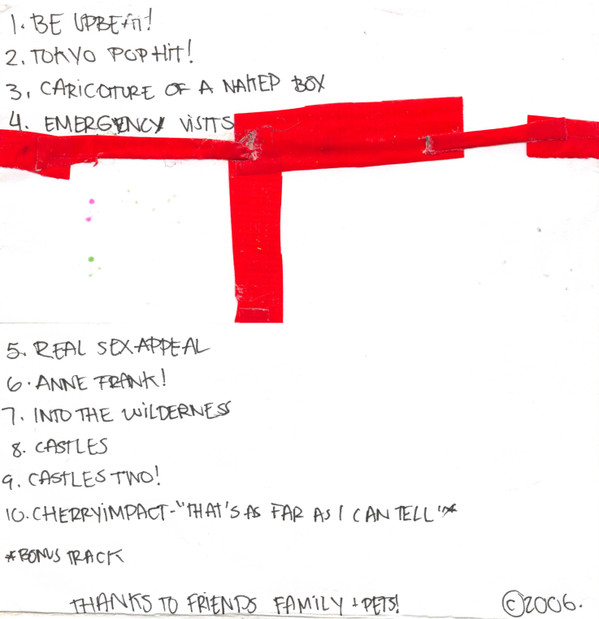 1. BE UPBEAT!
2. TOKYO POP HIT!
3. CARICATURE OF A NAKED BOX
4. EMERGENCY VISITS
5. REAL SEX APPEAL
6. ANNE FRANK!
7. INTO THE WILDERNESS
8. CASTLES
9. CASTLES TWO!
10. CHERRYIMPACT - "THAT'S AS FAR AS I CAN TELL"*
*BONUS TRACK
THANKS TO FRIENDS FAMILY + PETS!
©2006.